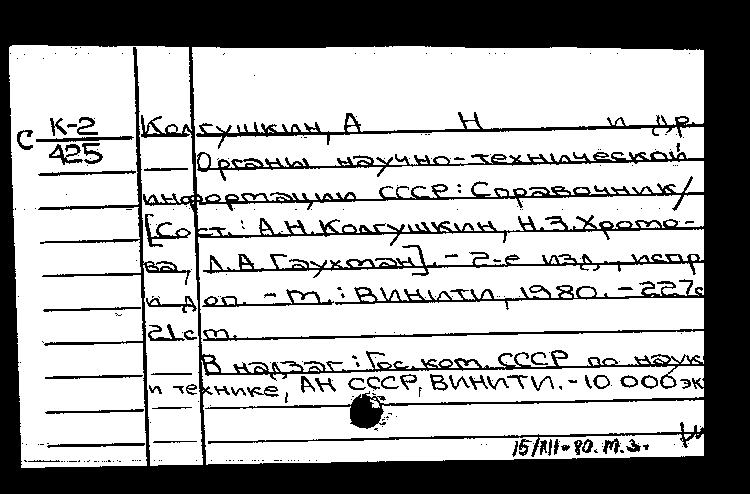 С К-2
425
Колгушкин, А Н и др.
Органы научно-технической
информации СССР: Справочник/
[Сост.: А.Н.Колгушкин, Н.З.Хромо-
ва, Л.А.Гаухман]. - 2-е изд., испр
и доп. - М.: ВИНИТИ, 1980. - 227с
21 cm.
В надзаг.: Гос. ком. СССР по наук
и технике, АН СССР, ВИНИТИ. - 10 000 эк
15/XII-80. М.З.